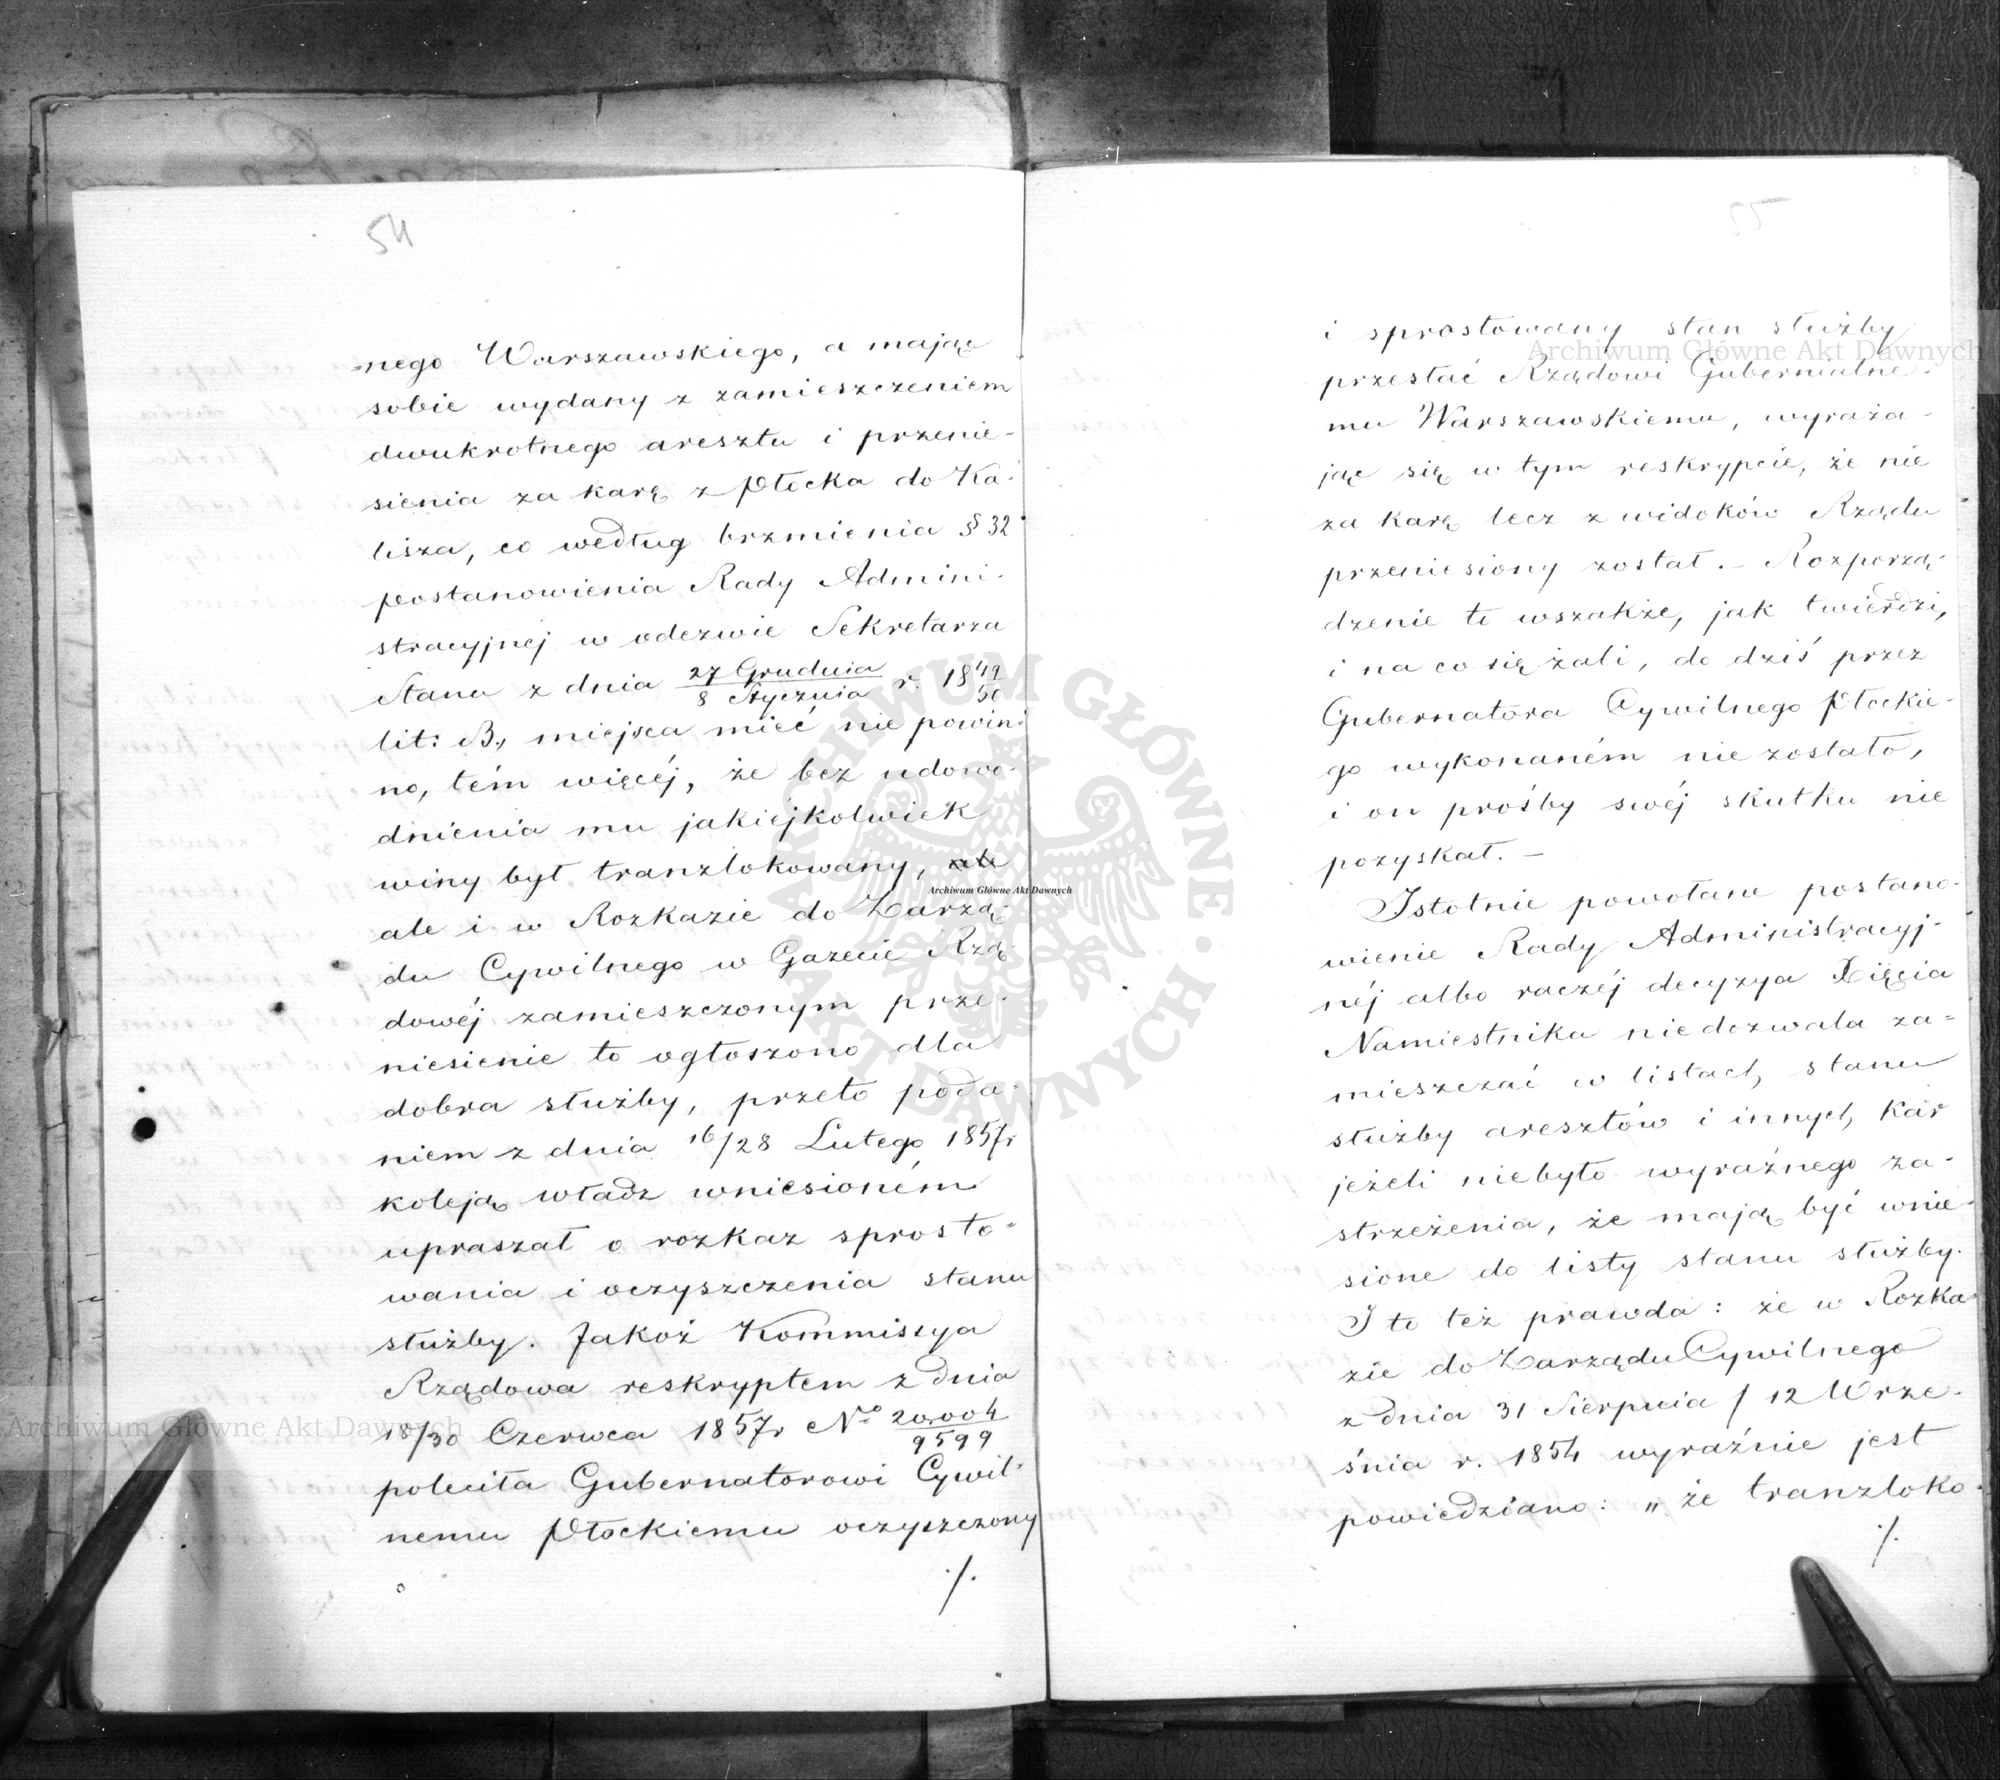 54
nego Warszawskiego, a mając
sobie wydany z zamieszczeniem
dwukrotnego aresztu i przenie-
sienia za karę z Płocka do Ka-
lisza, co według brzmienia § 32
postanowienia Rady Admini-
stracyjnéj w odezwie Sekretarza
Stanu z dnia 27 Grudnia / 8 Stycznia r. 18 49/50
lit: B, miejsca mieć nie powin-
no, tém więcéj, że bez udowo-
dnienia mu jakiéjkolwiek
winy był tranzlokowany, ale
ale i w Rozkazie do Zarzą-
du Cywilnego w Gazecie Rzą-
dowéj zamieszczonym prze-
niesienie to ogłoszono dla
dobra służby, przeto poda-
niem z dnia 16/28 Lutego 1857r
koleją władz wniesioném
upraszał o rozkaz sprosto-
wania i oczyszczenia stanu
służby. Jakoż Kommissya
Rządowa reskryptem z dnia
18/30 Czerwca 1857r No 20,004/9599
poleciła Gubernatorowi Cywil-
nemu Płockiemu oczyszczony
./.
55
i sprostowany stan służby
przesłać Rządowi Gubernialne-
mu Warszawskiemu, wyraża-
jąc się w tym reskrypcie, że nie
za karę lecz z widoków Rządu
przeniesiony został. – Rozporzą-
dzenie to wszakże, jak twierdzi,
i na co się żali, do dziś przez
Gubernatora Cywilnego Płockie-
go wykonaném nie zostało,
i on prośby swéj skutku nie
pozyskał. –
Istotnie powołane postano-
wienie Rady Administracyj-
néj albo raczéj decyzya Xięcia
Namiestnika niedozwala za-
mieszczać w listach stanu
służby aresztów i innych kar
jeżeli niebyło wyraźnego za-
strzeżenia, że mają być wnie-
sione do listy stanu służby.
I to też prawda: że w Rozka-
zie do Zarządu Cywilnego
z dnia 31 Sierpnia / 12 Wrze-
śnia r. 1854 wyraźnie jest
powiedziano: „że tranzloko-
./.
Archiwum Główne Akt Dawnych
Archiwum Główne Akt Dawnych
Archiwum Główne Akt Dawnych
ARCHIWUM GŁÓWNE · AKT DAWNYCH ·